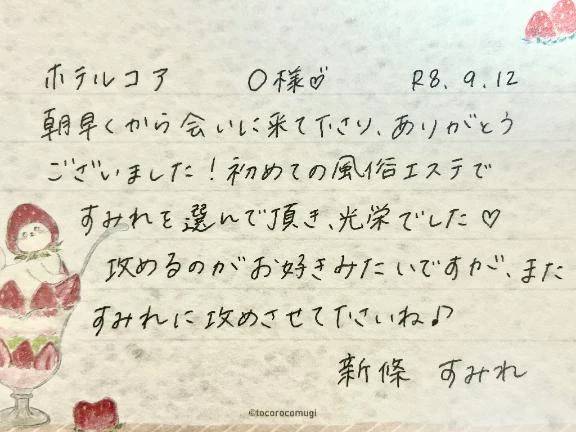 ホテルコア　〇様♡　R8.9.12
朝早くから会いに来て下さり、ありがとう
ございました！初めての風俗エステで
すみれを選んで頂き、光栄でした♡
攻めるのがお好きみたいですが、また
すみれに攻めさせて下さいね♪
新條　すみれ
©tocorocomugi